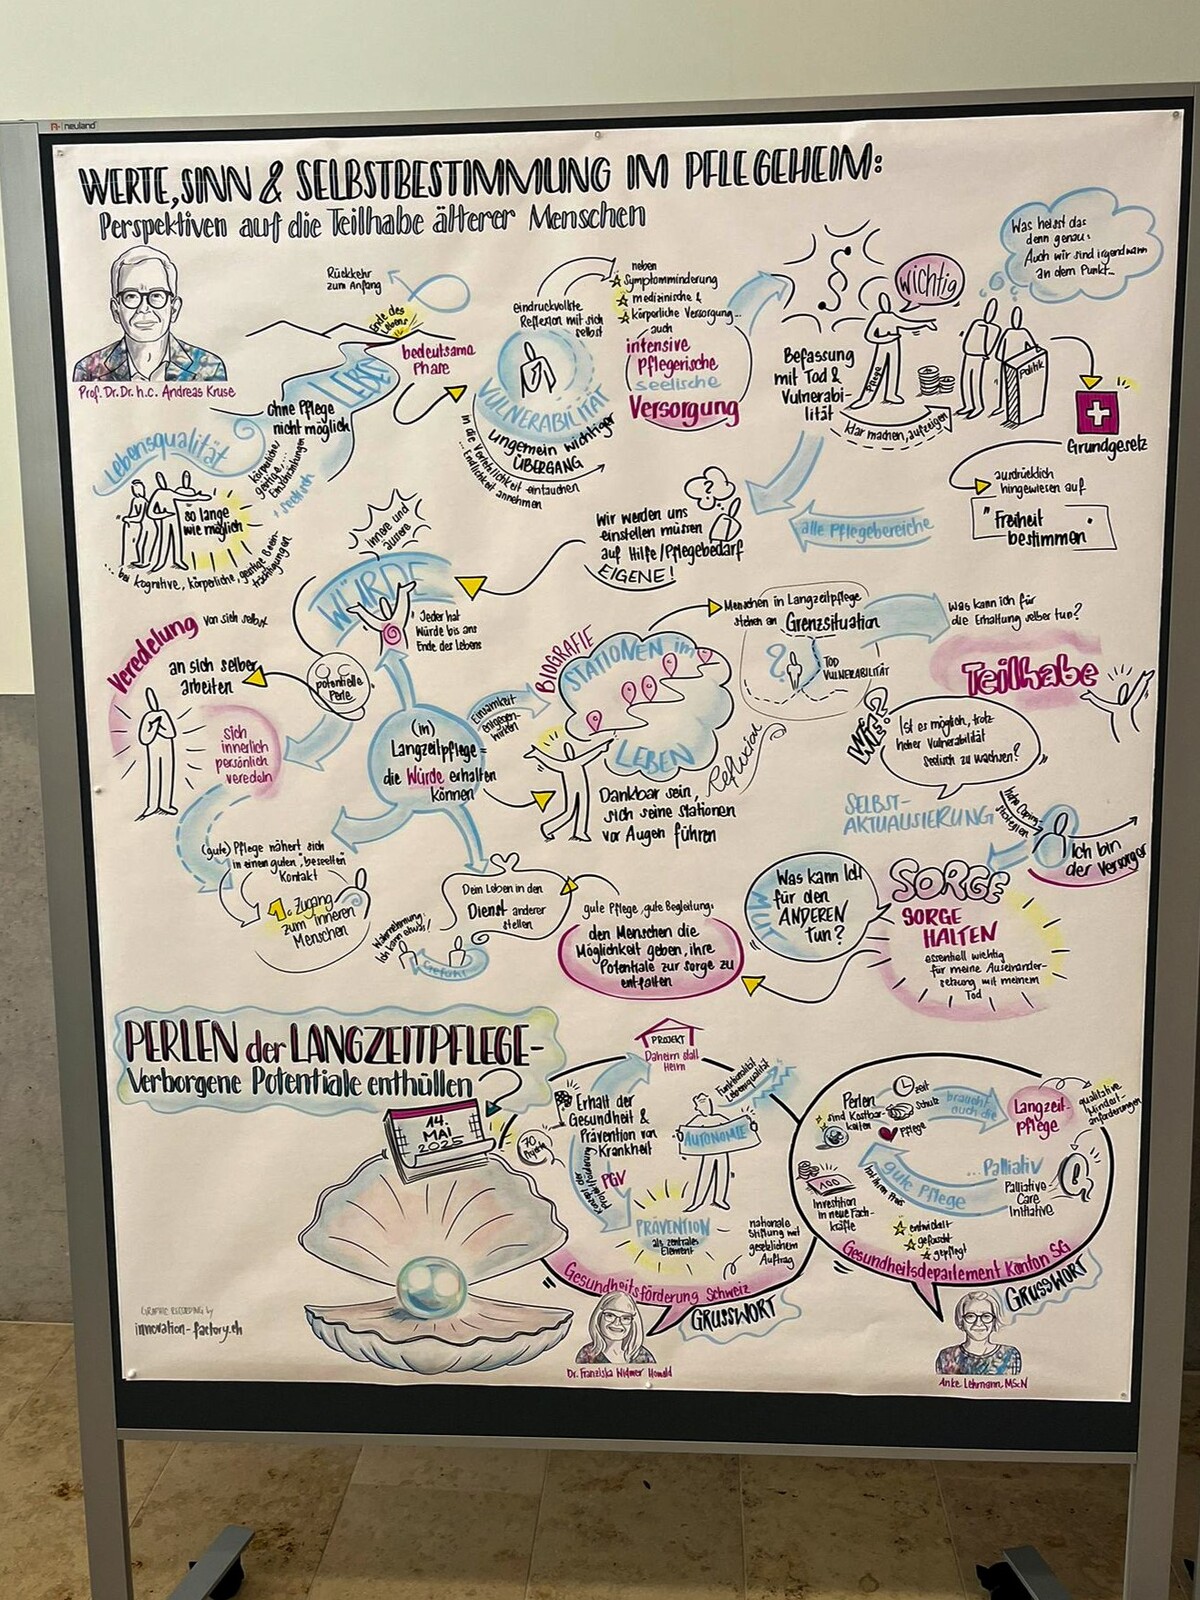 neuland
WERTE, SINN & SELBSTBESTIMMUNG IM PFLEGEHEIM:
Perspektiven auf die Teilhabe älterer Menschen
Prof. Dr. Dr. h.c. Andreas Kruse
Rückkehr
zum Anfang
Ende des
Lebens
bedeutsame
Phase
LEBE
ohne Pflege
nicht möglich
Lebensqualität
körperliche
geistige...
Einschränkungen
+ seelisch
so lange
wie möglich
... bei kognitive, körperliche, geistige Beein-
trächtigungen
eindruckvollste
Reflexion mit sich
selbst
VULNERABILITÄT
ungemein wichtiger
ÜBERGANG
in die Verletzlichkeit eintauchen
... Endlichkeit annehmen
neben
Symptomminderung
medizinische &
körperliche Versorgung...
auch
intensive
pflegerische
seelische
Versorgung
§
Befassung
mit Tod &
Vulnerabi-
lität
Pflege
wichtig
klar machen, aufzeigen
Politik
Was heisst das
denn genau:
Auch wir sind irgendwann
an dem Punkt...
Grundgesetz
ausdrücklich
hingewiesen auf
"Freiheit
bestimmen
alle Pflegebereiche
?
Wir werden uns
einstellen müssen
auf Hilfe/Pflegebedarf
EIGENE!
innere und
äussere
WÜRDE
Jeder hat
Würde bis ans
Ende des Lebens
Veredelung von sich selbst
an sich selber
arbeiten
potentielle
Perle
sich
innerlich
persönlich
veredeln
(im)
Langzeitpflege
die Würde erhalten
können
Einsamkeit
entgegen-
wirken
BIOGRAFIE
STATIONEN im
LEBEN
Dankbar sein,
sich seine Stationen
vor Augen führen
Reflexion
Menschen in Langzeitpflege
stehen an Grenzsituation
?
TOD
VULNERABILITÄT
Was kann ich für
die Erhaltung selber tun?
Teilhabe
Ist es möglich, trotz
hoher Vulnerabilität
seelisch zu wachsen?
SELBST-
AKTUALISIERUNG
hohe Coping-
strategien
Ich bin
der Versorger
(gute) Pflege nähert sich
in einem guten, "beseelten"
Kontakt
1. Zugang
zum inneren
Menschen
Wahrnehmung:
Ich kann etwas!
Gefühl
Dein Leben in den
Dienst anderer
stellen
gute Pflege, gute Begleitung:
den Menschen die
Möglichkeit geben, ihre
Potentiale zur Sorge zu
entfalten
MUT
Was kann ich
für den
ANDEREN
tun?
SORGE
SORGE
HALTEN
essentiell wichtig
für meine Auseinander-
setzung mit meinem
Tod
PERLEN der LANGZEITPFLEGE-
Verborgene Potentiale enthüllen
14.
MAI
2025
PROJEKT
Daheim statt
Heim
Erhalt der
Gesundheit &
Prävention von
Krankheit
70
Projekte
PGV
PRÄVENTION
als zentrales
Element
Funktionalität
Lebensqualität
AUTONOMIE
nationale
Stiftung mit
gesetzlichem
Auftrag
Gesundheitsförderung Schweiz
GRUSSWORT
Dr. Franziska Widmer Howald
Perlen
sind Kostbar-
keiten
Zeit
Schutz
Pflege
braucht
auch die
Langzeit-
pflege
qualitative
Mindest-
anforderungen
...Palliativ
Palliative-
Care
Initiative
gute Pflege
hat ihren Preis
100
Investition
in neue Fach-
kräfte
entwickelt
gefragt
gepflegt
Gesundheitsdepartement Kanton SG
GRUSSWORT
Anke Lehmann, MScN
GRAPHIC RECORDING by
innovation-factory.ch